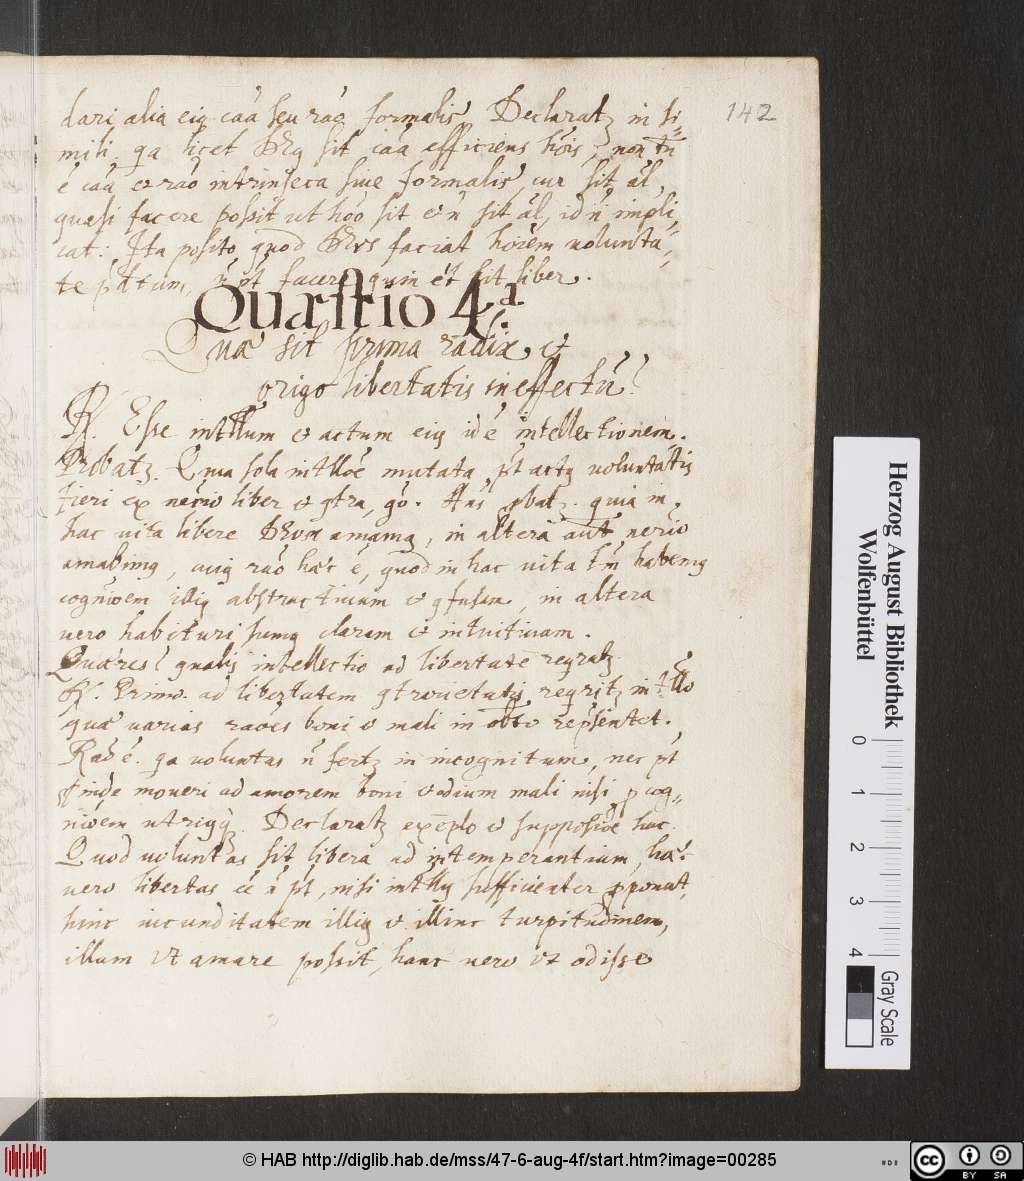 dari alia eius caã seu raõ formalis. Declaratʒ in si-
mili. qa licet Deus sit caã efficiens hõis, non tñ
ẽ caã et raõ intrinseca sive formalis, cur sit ãl,
quasi facere possit ut homo sit et ñ sit ãl, id ñ impli-
cat: Ita posito quod Deus faciat hoiem volunta-
te pditum, ñ pt facere quin et sit liber.
Quæstio 4.a
Quæ sit prima radix et
origo libertatis in effectũ?
R. Esse intllum et actum eius id ẽ intellectionem.
Probatʒ. Qua sola intlloẽ mutata, pt actus voluntatis
fieri ex necrio liber et contra, go. Ans pbatʒ. quia in
hac vita libere Deum amamus, in altera aut necrio
amabimus, cuius raõ hæc ẽ, quod in hac vita tm habemus
cogniõem illius abstractivam et confusam, in altera
vero habituri sumus claram et intuitivam.
Quæres? qualis intellectio ad libertatẽ reqratʒ
R. Primo. ad libertatem contrarietatis reqritʒ intllo
quæ varias raões boni et mali in obto repsentet.
Raõ ẽ. qa voluntas ñ fertʒ in incognitum, nec pt
proinde moveri ad amorem boni et odium mali nisi p cog-
niõem utriusqʒ. Declaratʒ exẽplo et suppositiõe hac.
Quod voluntas sit libera ad intemperantiam, hæc
vero libertas eẽ ñ pt, nisi intllus sufficienter pponat,
hinc iucunditatem illius et illinc turpitudinem,
illam ut amare possit, hanc vero ut odisse
142
Herzog August Bibliothek
Wolfenbüttel
0
1
2
3
4
Gray Scale
© HAB http://diglib.hab.de/mss/47-6-aug-4f/start.htm?image=00285
cc
BY
SA